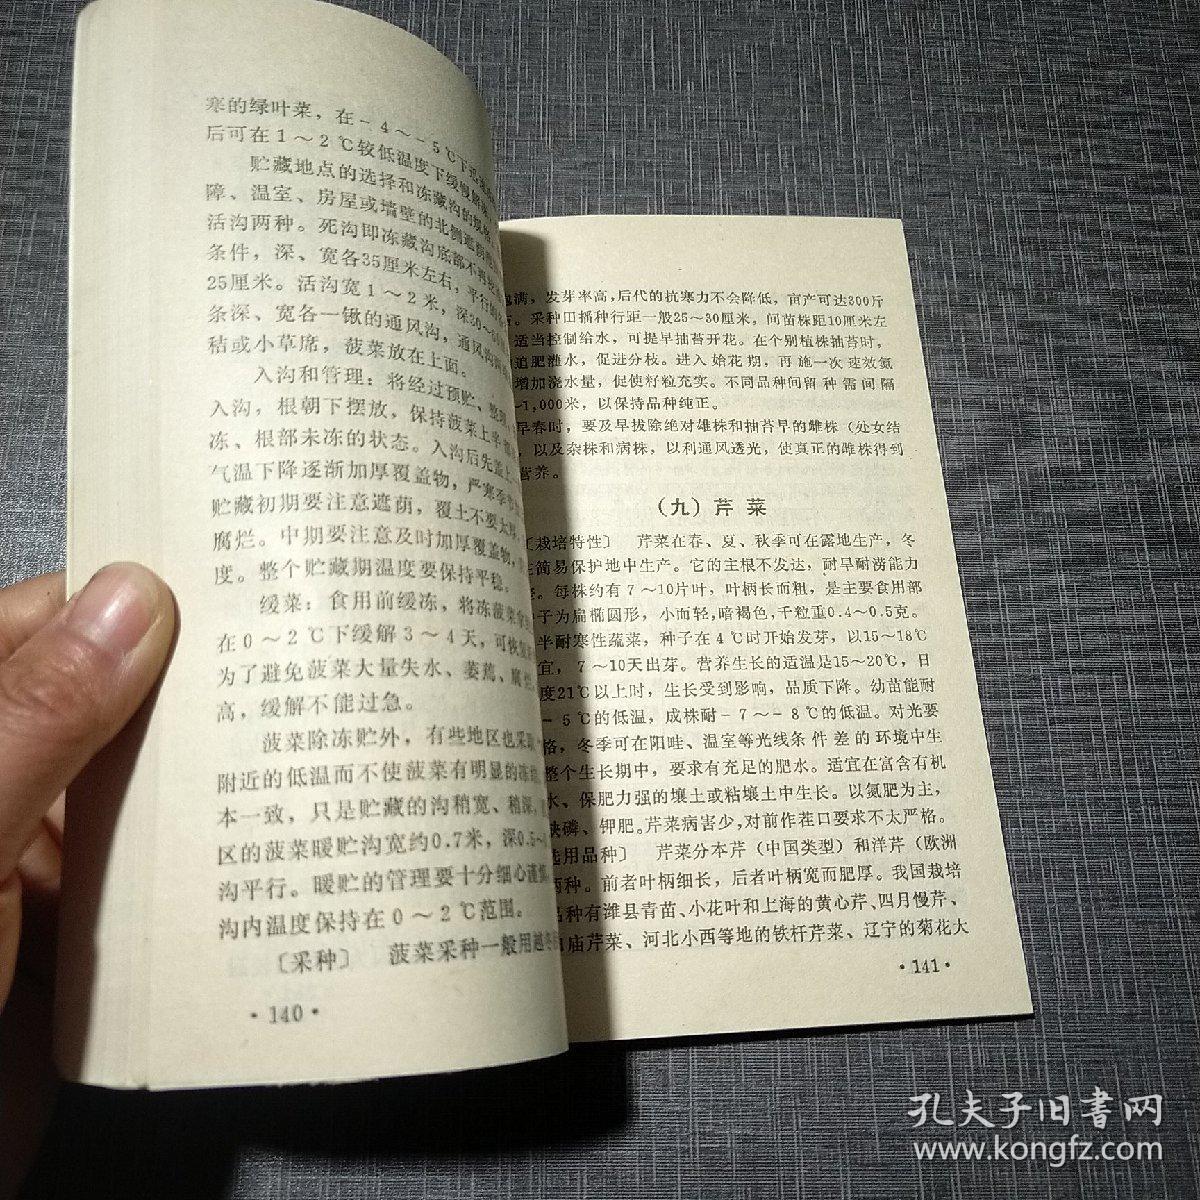 寒的绿叶菜，在－4～－5℃下
后可在1～2℃较低温度下缓慢解
贮藏地点的选择和冻藏沟的
障、温室、房屋或墙壁的北侧
活沟两种。死沟即冻藏沟底部不再
条件，深、宽各35厘米左右，平行
25厘米。活沟宽1～2米，深
条深、宽各一锹的通风沟，通风沟
秸或小草席，菠菜放在上面。
入沟和管理：将经过预贮、整
入沟，根朝下摆放，保持菠菜上半
冻、根部未冻的状态。入沟后先盖上
气温下降逐渐加厚覆盖物，严寒季
贮藏初期要注意遮荫，覆土不要太
腐烂。中期要注意及时加厚覆盖物，
度。整个贮藏期温度要保持平稳。
缓菜：食用前缓冻，将冻菠菜
在0～2℃下缓解3～4天，可恢复
为了避免菠菜大量失水、萎蔫、腐
高，缓解不能过急。
菠菜除冻贮外，有些地区也采
附近的低温而不使菠菜有明显的冻
本一致，只是贮藏的沟稍宽、稍深，
区的菠菜暖贮沟宽约0.7米，深0.5～
沟平行。暖贮的管理要十分细心谨慎
沟内温度保持在0～2℃范围。
〔采种〕 菠菜采种一般用越冬
·140·
满，发芽率高，后代的抗寒力不会降低，亩产可达300斤
。采种田播种行距一般25～30厘米，间苗株距10厘米左
适当控制给水，可提早抽苔开花。在个别植株抽苔时，
追肥灌水，促进分枝。进入始花期，再施一次速效氮
增加浇水量，促使籽粒充实。不同品种间留种需间隔
～1,000米，以保持品种纯正。
早春时，要及早拔除绝对雄株和抽苔早的雌株（处女结
，以及杂株和病株，以利通风透光，使真正的雌株得到
营养。
（九）芹菜
〔栽培特性〕 芹菜在春、夏、秋季可在露地生产，冬
简易保护地中生产。它的主根不发达，耐旱耐涝能力
。每株约有7～10片叶，叶柄长而粗，是主要食用部
子为扁椭圆形，小而轻，暗褐色，千粒重0.4～0.5克。
半耐寒性蔬菜，种子在4℃时开始发芽，以15～18℃
宜，7～10天出芽。营养生长的适温是15～20℃，日
度21℃以上时，生长受到影响，品质下降。幼苗能耐
－5℃的低温，成株耐－7～－8℃的低温。对光要
格，冬季可在阳畦、温室等光线条件差的环境中生
整个生长期中，要求有充足的肥水。适宜在富含有机
水、保肥力强的壤土或粘壤土中生长。以氮肥为主，
缺磷、钾肥。芹菜病害少，对前作茬口要求不太严格。
选用品种〕 芹菜分本芹（中国类型）和洋芹（欧洲
两种。前者叶柄细长，后者叶柄宽而肥厚。我国栽培
品种有潍县青苗、小花叶和上海的黄心芹、四月慢芹、
庙芹菜、河北小西等地的铁杆芹菜、辽宁的菊花大
·141·
孔夫子旧书网
www.kongfz.com